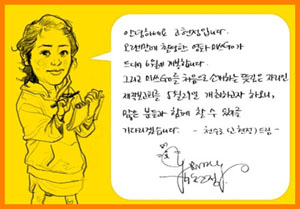 안녕하세요 고현정입니다.
오랜만에 촬영한 영화 미쓰GO가
드디어 6월에 개봉합니다.
그리고 미쓰GO를 처음으로 소개하는 뜻깊은 자리인
제작보고회를 5월21일 개최하고자 하오니,
많은 분들과 함께 할 수 있기를
기다리겠습니다. - 천수로(고현정)드림 -